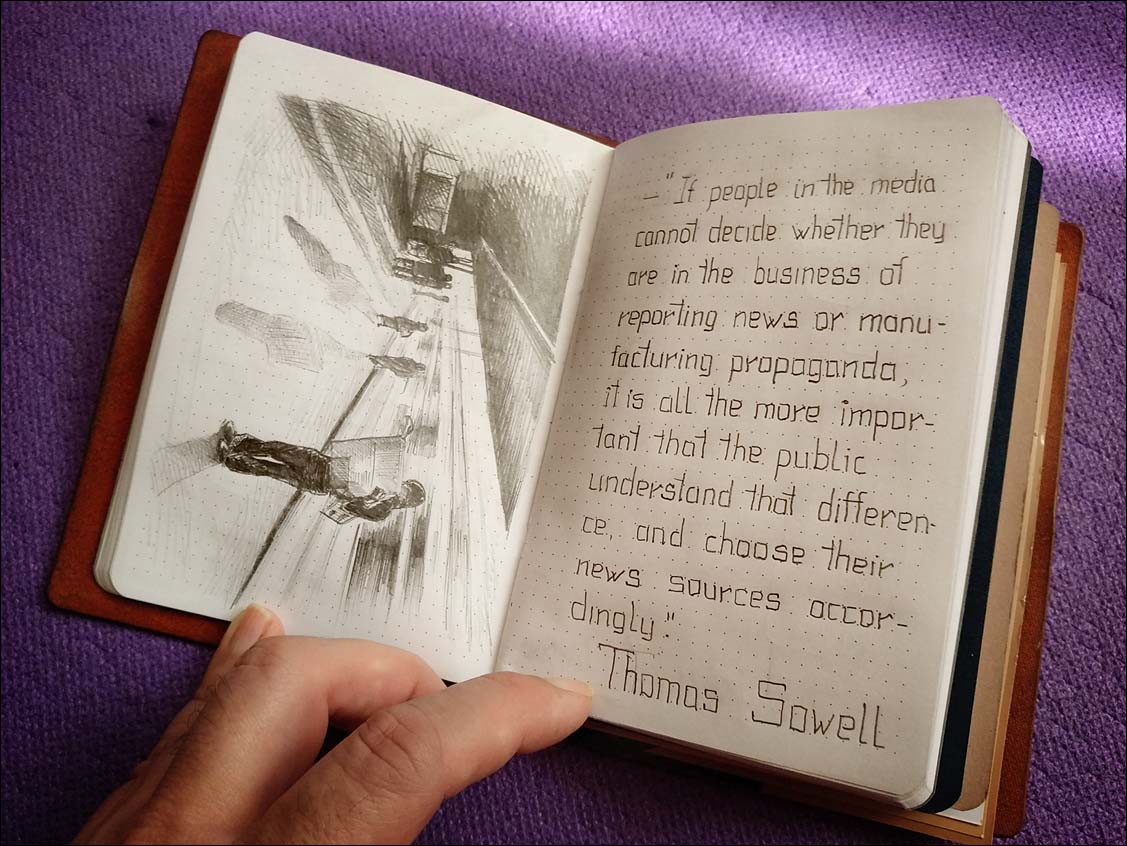 — "If people in the media
cannot decide whether they
are in the business of
reporting news or manu-
facturing propaganda,
it is all the more impor-
tant that the public
understand that differen-
ce, and choose their
news sources accor-
dingly."
Thomas Sowell